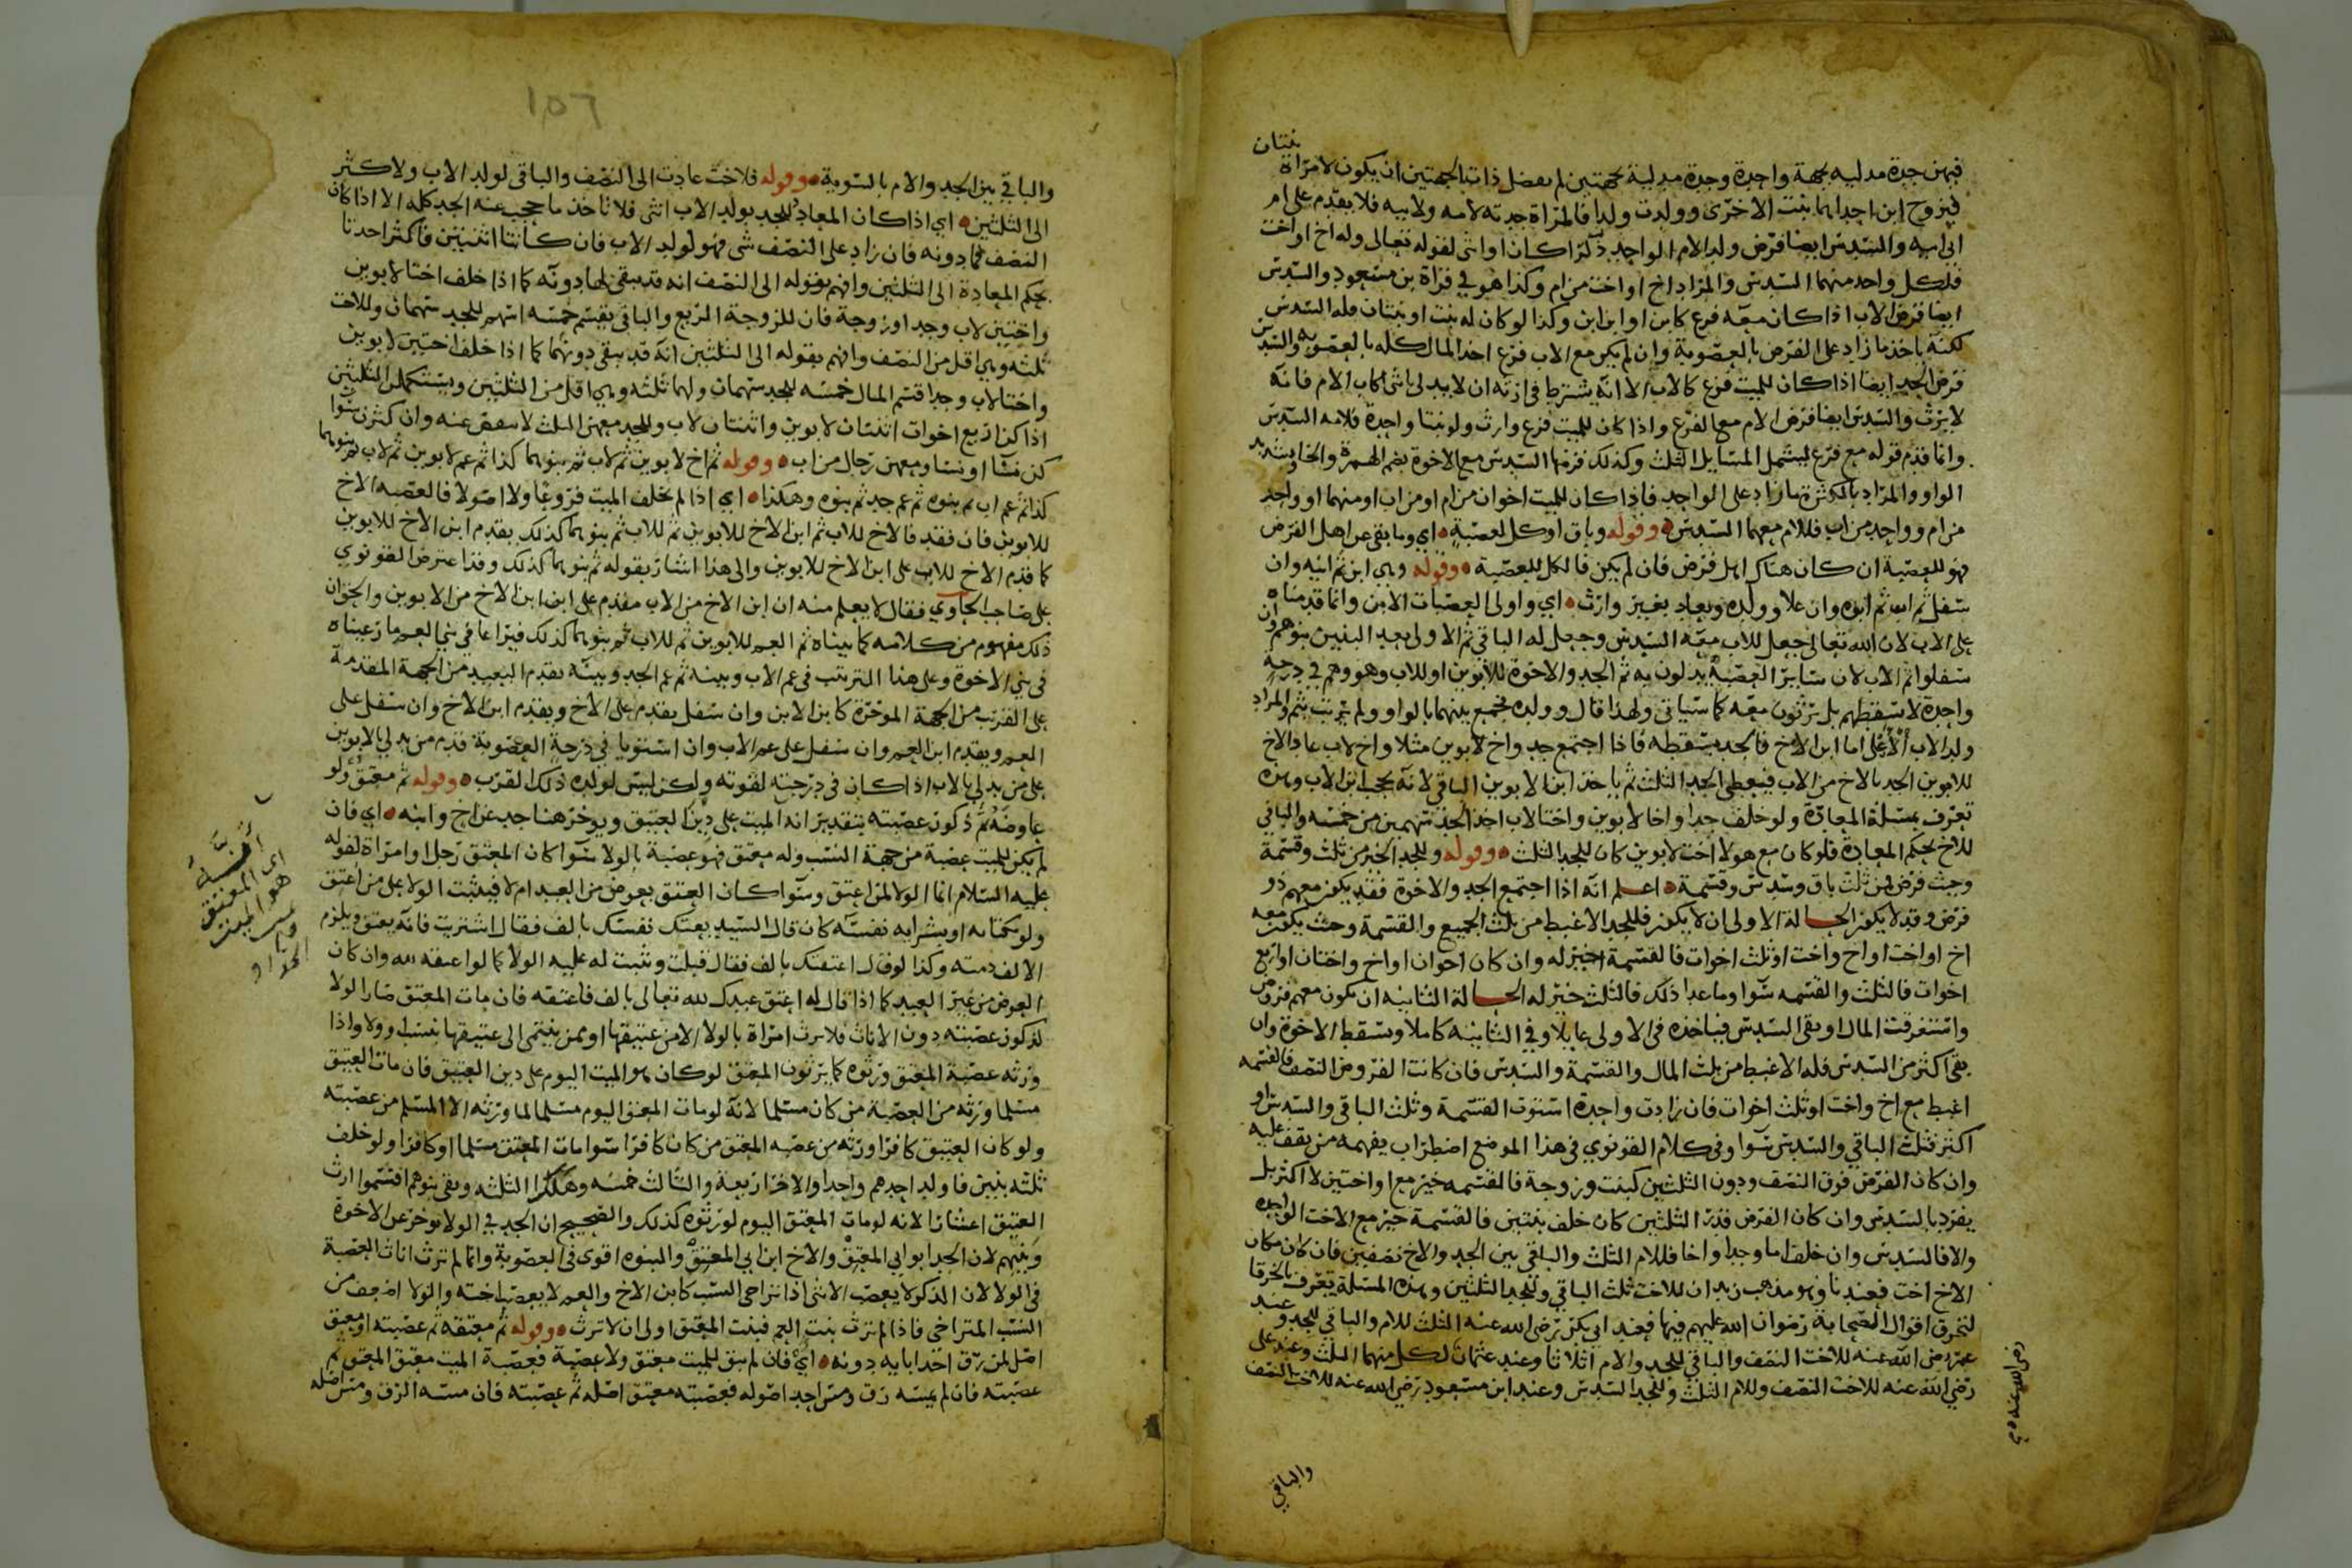 بنتان
فيهن جدة مدليه بجهة واحدة وجدة مدلية بجهتين لم يفضل ذات الجهتين ان يكون لامراة
فيزوج ابن احداهما بنت الاخرى وولدت ولدا فالمراة جدته لامه ولابيه فلا يقدم على ام
ابي ابيه والسدس ايضا فرض ولد الام الواحد ذكرا كان او انثى لقوله تعالى وله اخ او اخت
فلكل واحد منهما السدس والمراد اخ او اخت من ام وكذا هو في قراة بن مسعود والسدس
ايضا فرض الاب اذا كان معه فرع كابن او ابن ابن وكذا لو كان له بنت او بنتان فله السدس
لكنه ياخذ ما زاد على الفرض بالعصوبة وان لم يكن مع الاب فرع اخذ المال كله بالعصوبه والسدس
فرض الجد ايضا اذا كان للميت فرع كالاب الا انه يشترط في ارثه ان لا يدلي بانثى كاب الام فانه
لا يرث والسدس ايضا فرض الام مع الفرع واذا كان للميت فرع وارث ولو بنتا واحدة فلامه السدس
وانما قدم قوله مع فرع ليشمل المسايل الثلث وكذلك فرضها السدس مع الاخوة بضم الهمزة والخا وتشديد
الواو والمراد بالكثرة ما زاد على الواحد فاذا كان للميت اخوان من ام او من اب او منهما او واحد
من ام وواحد من اب فللام معهما السدس وقوله وباق او كل لعصبة اي وما بقي عن اهل الفرض
فهو للعصبة ان كان هناك اهل فرض فان لم يكن فالكل للعصبة وقوله وهي ابن ثم ابنه وان
سفل ثم اب ثم ابوه وان علا وولده ويعاد بغير وارث اي واولى العصبات الابن وانما قدمناه
على الاب لان الله تعالى جعل للاب معه السدس وجعل له الباقي ثم الاولى بعد البنين بنوهم وان
سفلوا ثم الاب لان ساير العصبة يدلون به ثم الجد والاخوة للابوين او للاب وهو وهم في درجة
واحدة لا يسقطهم بل يرثون معه كما سياتي ولهذا قال وولده فجمع بينهما بالواو ولم يرتب بثم والمراد
ولد الاب الادنى اما ابن الاخ فالجد يسقطه فاذا اجتمع جد واخ لابوين مثلا واخ لاب عاد الاخ
للابوين الجد بالاخ من الاب فيعطى الجد الثلث ثم ياخذ ابن الابوين الباقي لانه يحجب ابن الاب وهذه
تعرف بمسلة المعادة ولو خلف جدا واخا لابوين واختا لاب اخذ الجد سهمين من خمسه والباقي
للاخ بحكم المعادة فلو كان مع هولا اخت لابوين كان للجد الثلث وقوله وللجد الخير من ثلث وقسمة
وحيث فرض فمن ثلث باق وسدس وقسمة اعلم انه اذا اجتمع الجد والاخوة فقد يكون معهم ذو
فرض وقد لا يكون الحالة الاولى ان لا يكون فللجد الاغبط من ثلث الجميع والقسمة وحيث يكون معه
اخ او اخت او اخ واخت او ثلث اخوات فالقسمة خير له وان كان اخوان او اخ واختان او اربع
اخوات فالثلث والقسمه سوا وما عدا ذلك فالثلث خير له الحالة الثانيه ان يكون معهم فروض
واستغرقت المال او بقي السدس فياخذه في الاولى عايلا وفي الثانيه كاملا وتسقط الاخوة وان
بقي اكثر من السدس فله الاغبط من ثلث المال والقسمة والسدس فان كانت الفروض النصف فالقسمه
اغبط مع اخ واخت او ثلث اخوات فان زادت واحدة استوت القسمة وثلث الباقي والسدس او
اكثر فثلث الباقي والسدس سوا وفي كلام القونوي في هذا الموضع اضطراب يفهمه من يقف عليه
وان كان الفرض فوق النصف ودون الثلثين كبنت وزوجة فالقسمه خير مع اخ او اختين لا اكثر بل
يفرد بالسدس وان كان الفرض قدر الثلثين كان خلف بنتين فالقسمة خير مع الاخت الواحده
والا فالسدس وان خلف اما وجدا واخا فللام الثلث والباقي بين الجد والاخ نصفين فان كان مكان
الاخ اخت فعندنا وهو مذهب زيد ان للاخت ثلث الباقي وللجد الثلثين وهذه المسلة تعرف بالخرقا
لتخرق اقوال الصحابة رضوان الله عليهم فيها فعند ابي بكر رضي الله عنه الثلث للام والباقي للجد وعند
عمر رضي الله عنه للاخت النصف والباقي للجد والام اثلاثا وعند عثمان لكل منهما الثلث وعند علي
رضي الله عنه للاخت النصف وللام الثلث وللجد السدس وعند ابن مسعود رضي الله عنه للاخت النصف
رضي الله عنه
والباقي
١٥٦
والباقي بين الجد والام بالسوية وقوله فلاخت عادت الى النصف والباقي لولد الاب ولاكثر
الى الثلثين اي اذا كان المعاد للجد بولد الاب انثى فلا تاخذ ما حجب عنه الجد كله الا اذا كان
النصف فما دونه فان زاد على النصف شي فهو لولد الاب فان كانتا اثنتين فاكثر اخذتا
بحكم المعادة الى الثلثين وافهم بقوله الى النصف انه قد يبقى لها دونه كما اذا خلف اختا لابوين
واختين لاب وجد او زوجة فان للزوجة الربع والباقي يقسم خمسه اسهم للجد سهمان وللاخت
ثلثه وهي اقل من النصف وافهم بقوله الى الثلثين انه قد يبقى دونهما كما اذا خلف اختين لابوين
واختا لاب وجدا قسم المال خمسه للجد سهمان ولهما ثلثه وهي اقل من الثلثين ويستكملن الثلثين
اذا كن اربع اخوات اثنتان لابوين واثنتان لاب وللجد معهن الثلث لا ينقص عنه وان كثرن سوا
كن نسا او نسا ومعهن رجال من اب وقوله ثم اخ لابوين ثم لاب ثم بنوهما كذا ثم عم لابوين ثم لاب ثم بنوهما
كذا ثم عم اب ثم بنوه ثم عم جد ثم بنوه وهكذا اي اذا لم يخلف الميت فروعا ولا اصولا فالعصبه الاخ
للابوين فان فقد فالاخ للاب ثم ابن الاخ للابوين ثم للاب ثم بنوهما كذلك يقدم ابن الاخ للابوين
كما قدم الاخ للاب على ابن الاخ للابوين والى هذا اشار بقوله ثم بنوهما كذلك وقد اعترض القونوي
على صاحب الحاوي فقال لا يعلم منه ان ابن الاخ من الاب مقدم على ابن ابن الاخ من الابوين والجواب ان
ذلك مفهوم من كلامه كما بيناه ثم العم للابوين ثم للاب ثم بنوهما كذلك فيراعا في بني العم ما رعيناه
في بني الاخوة وعلى هذا الترتيب في عم الاب وبينه ثم عم الجد وبينه يقدم البعيد من الجهة المقدمة
على القريب من الجهة الموخرة كابن الابن وان سفل يقدم على الاخ ويقدم ابن الاخ وان سفل على
العم ويقدم ابن العم وان سفل على عم الاب وان استويا في درجة العصوبة قدم من يدلي بالابوين
على من يدلي بالاب اذا كان في درجته لقوته ولكن ليس لولده ذلك القرب وقوله ثم معتق ولو
عاوضه ثم ذكور عصبته بتقدير انه الميت على دين العتيق ويوخر هنا جد عن اخ وابنه اي فان
لم يكن للميت عصبة من جهة النسب وله معتق فهو عصبة بالولا سوا كان المعتق رجلا او امراة لقوله
عليه السلام انما الولا لمن اعتق وسوا كان العتق بعوض من العبد ام لا فيثبت الولا على من اعتق
ولو بكتابه او بشرايه نفسه كان قال السيد بعتك نفسك بالف فقال اشتريت فانه يعتق ويلزم
الالف ذمته وكذا لو قال اعتقتك بالف فقال قبلت ويثبت له عليه الولا كما لو اعتقه لله وان كان
العوض من غير العبد كما اذا قال له اعتق عبدك لله تعالى بالف فاعتقه فان مات المعتق صار الولا
لذكور عصبته دون الاناث فلا ترث امراة بالولا الا من عتيقها او ممن ينتمي الى عتيقها بنسب او ولا واذا
ورثه عصبة المعتق ورثوه كما يرثون المعتق لو كان هو الميت اليوم على دين العتيق فان مات العتيق
مسلما ورثه من العصبة من كان مسلما لانه لو مات المعتق اليوم مسلما لما ورثه الا المسلم من عصبته
ولو كان العتيق كافرا ورثه من عصبه المعتق من كان كافرا سوا مات المعتق مسلما او كافرا ولو خلف
ثلثه بنين فاولد احدهم واحدا والاخر اربعة والثالث خمسه وهلك الثلثه وبقي بنوهم اقتسموا ارث
العتيق اعشارا لانه لو مات المعتق اليوم لورثوه كذلك والصحيح ان الجد في الولا يوخر عن الاخوة
وبنيهم لان الجد ابو ابي المعتق والاخ ابن ابي المعتق والبنوه اقوى في العصوبة وانما لم ترث اناث العصبة
في الولا لان الذكر لا يعصب الانثى اذا تراخى النسب كابن الاخ والعم لا يعصب اخته والولا اضعف من
النسب المتراخي فاذا لم ترث بنت العم فبنت المعتق اولى ان لا ترث وقوله ثم معتقه ثم عصبته او معتق
اصل لمن رق احد ابايه دونه اي فان لم يبق للميت معتق ولا عصبة فعصبة الميت معتق المعتق ثم
عصبته فان لم يمسه رق ومس احد اصوله فعصبته معتق اصله ثم عصبته فان مسه الرق ومس اصله
اي المعتق
هو الميت